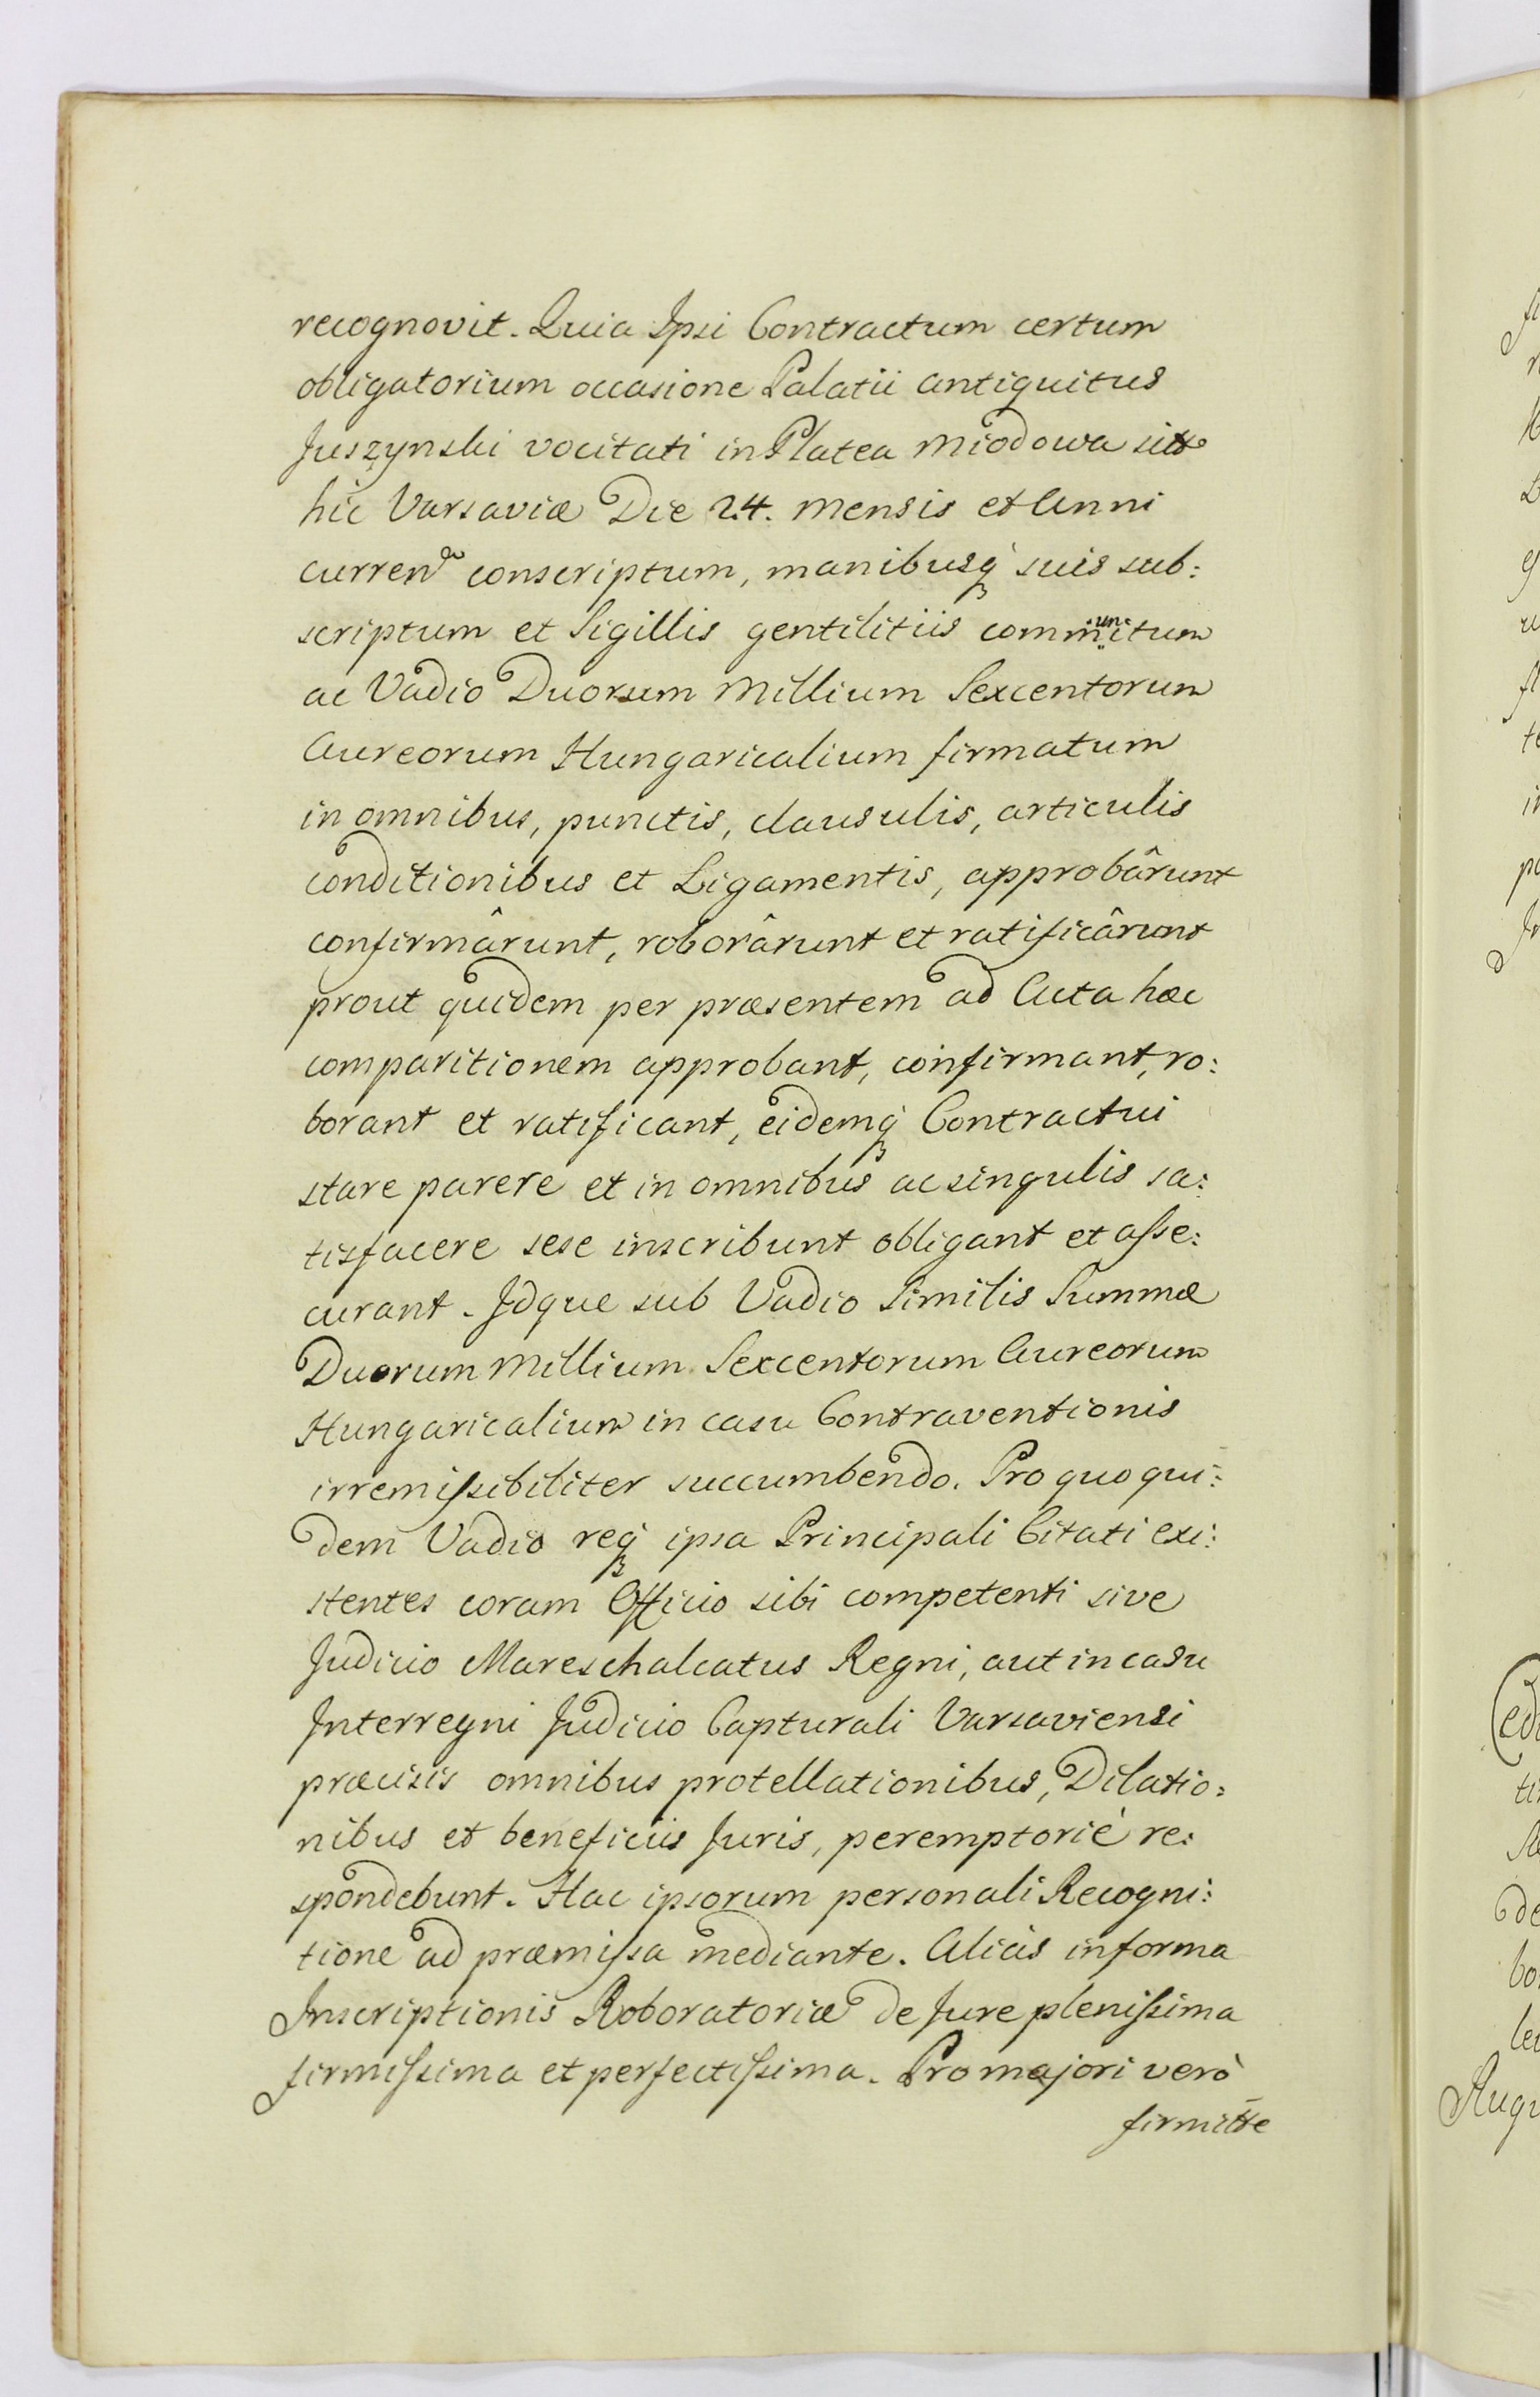 recognovit. Quia Ipsi Contractum certum
obligatorium occasione Palatii antiquitus
Juszynski vocitati in Platea Miodowa
hic Varsaviæ Die 24. mensis et Anni
curren conscriptum, manibusq suis sub:
scriptum et Sigillis gentilitiis communitum
ac Vadio Duorum Millium Sexcentorum
Aureorum Hungaricalium firmatum
in omnibus, punctis, clausulis, articulis
conditionibus et Ligamentis, approbârunt
confirmârunt, roborârunt et ratificârunt
prout quidem per præsentem ad Acta hæc
comparitionem approbant, confirmant, ro:
borant et ratificant, eidemq Contractui
stare parere et in omnibus ac singulis sa:
tisfacere sese inscribunt obligant et asse:
curant. Idque sub Vadio Similis Summæ
Duorum Millium Sexcentorum Aureorum
Hungaricalium in casu Contraventionis
irremissibiliter succumbendo. Pro quo qui:
dem Vadio req ipsa Principali Citati exi:
stentes coram Officio sibi competenti sive
Judicio Mareschalcatus Regni, aut in casu
Interregni Judicio Capturali Varsaviensi
præcisis omnibus protellationibus, Dilatio:
nibus et beneficiis Juris, peremptoriè re:
spondebunt. Hac ipsorum personali Recogni:
tione ad præmissa mediante. Aliàs in forma
Inscriptionis Roboratoriæ de Jure plenissima
firmissima et perfectissima. Pro majori verò
firmitte